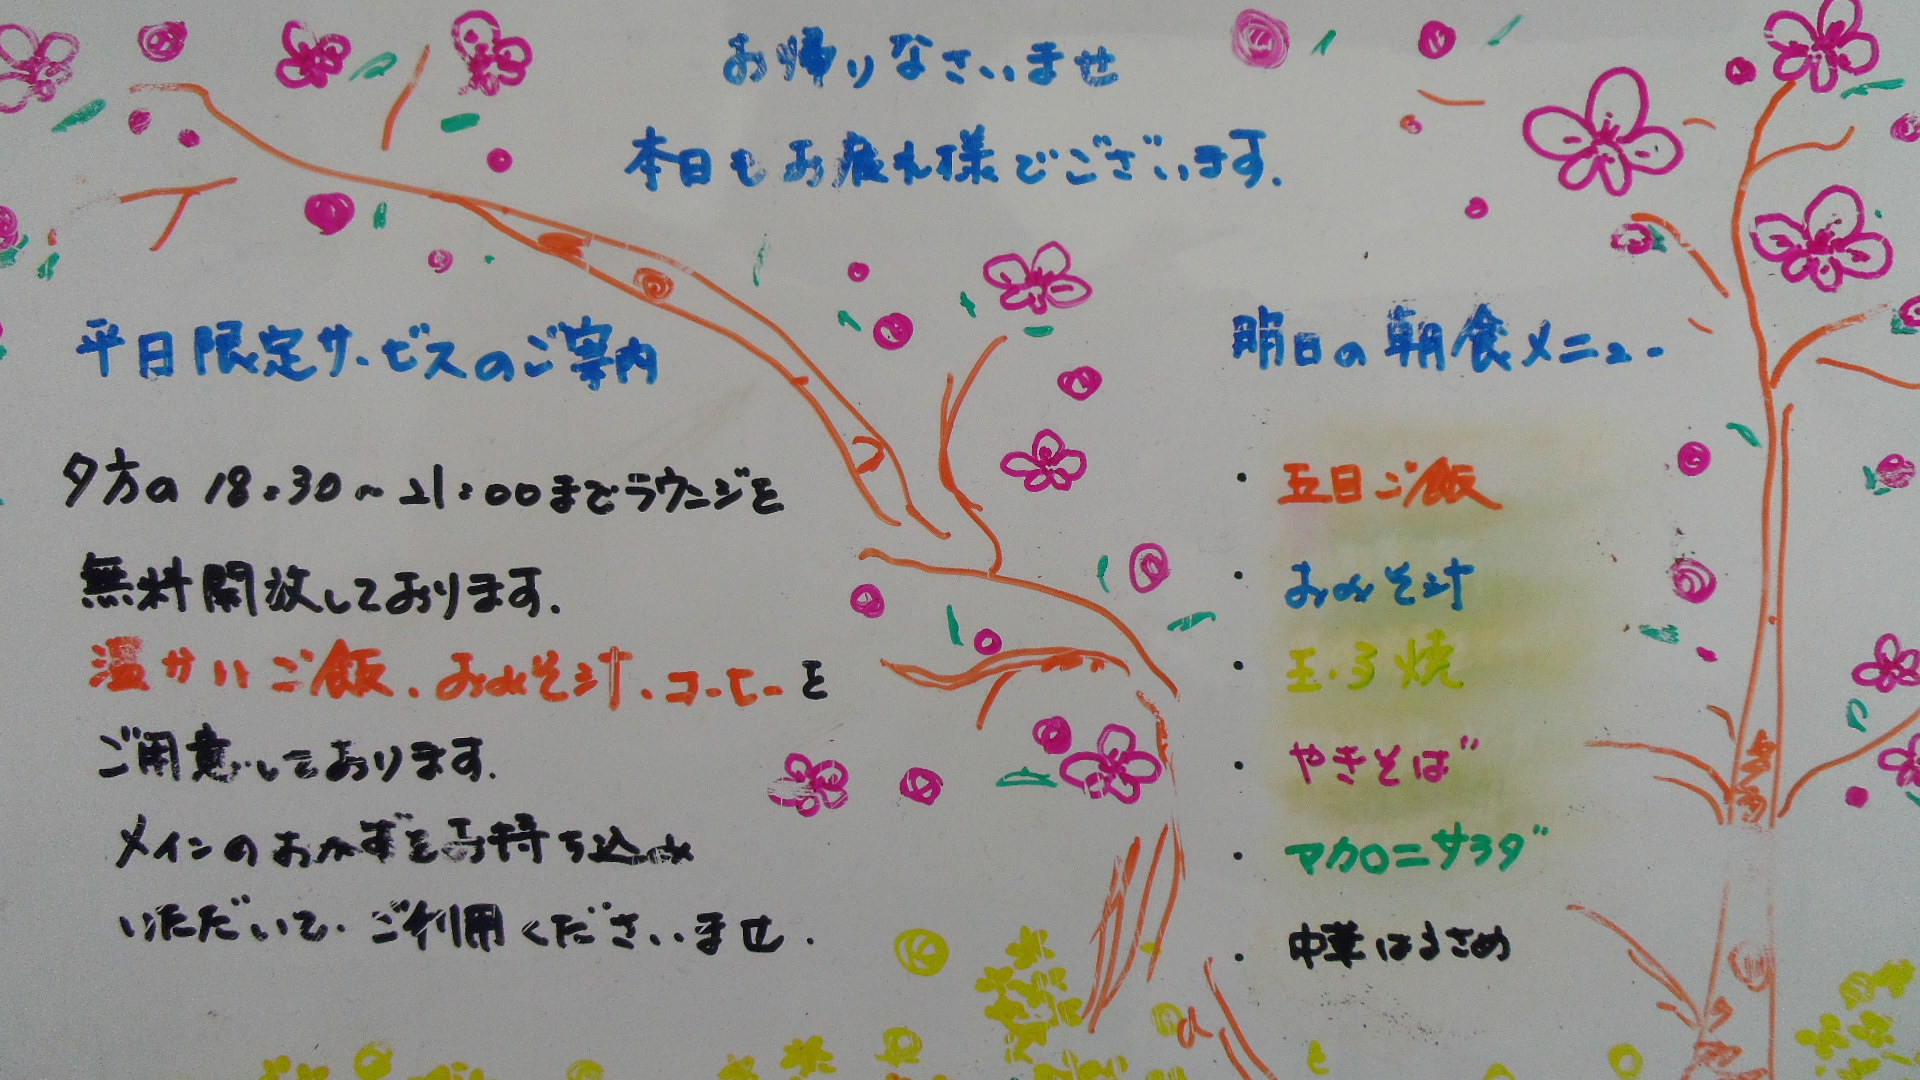 お帰りなさいませ
本日もお疲れ様でございます.
平日限定サービスのご案内
夕方の18:30〜21:00までラウンジを
無料開放しております.
温かいご飯、おみそ汁、コーヒーを
ご用意しております.
メインのおかずをお持ち込み
いただいて、ご利用くださいませ.
明日の朝食メニュー
・五目ご飯
・おみそ汁
・玉子焼
・やきそば
・マカロニサラダ
・中華はるさめ